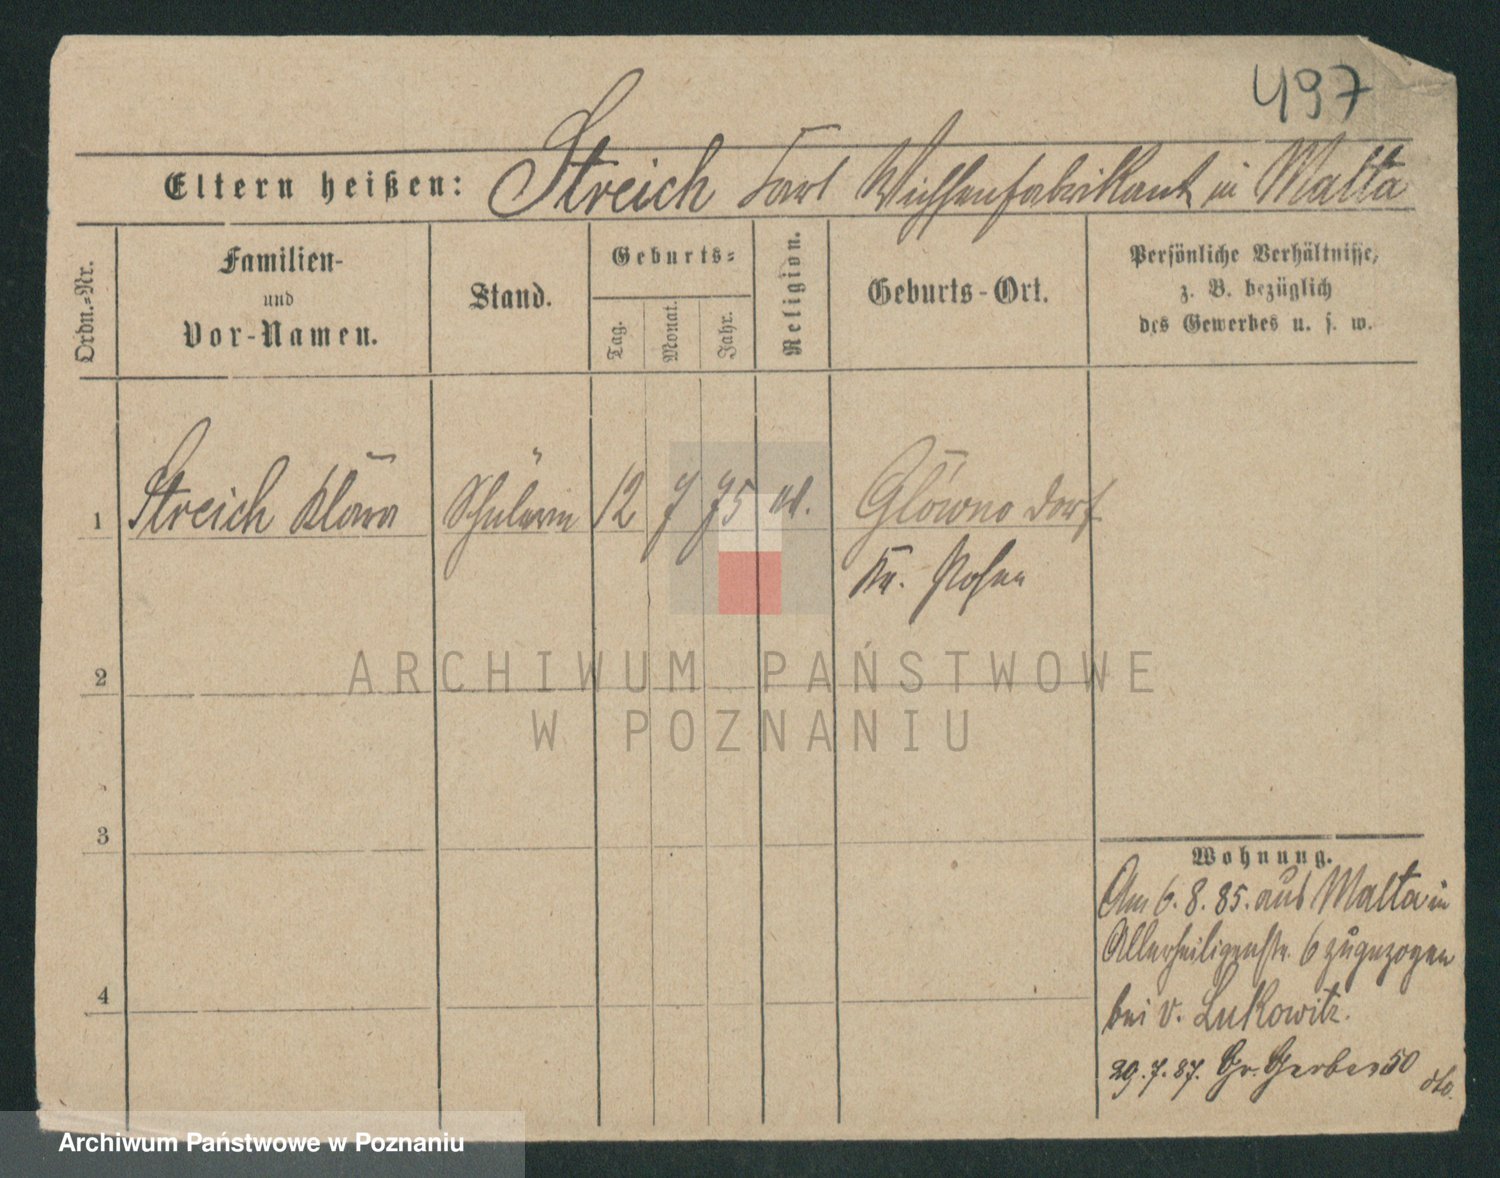 497
Eltern heißen: Streich Carl Wichsenfabrikant in Malta
Ordn.=Nr.
Familien-
und
Vor-Namen.
Stand.
Geburts=
Tag.
Monat.
Jahr.
Religion.
Geburts-Ort.
Persönliche Verhältnisse,
z. B. bezüglich
des Gewerbes u. s. w.
1 Streich Klara Schülerin 12 7 75 Główno Dorf
Kr. Posen
2
3
4
Wohnung.
Am 6. 8. 85. aus Malta in
Allerheiligenstr. 6 zugezogen
bei v. Lukowitz.
29.7.87. Gr. Gerber 50 dto.
ARCHIWUM PAŃSTWOWE
W POZNANIU
Archiwum Państwowe w Poznaniu